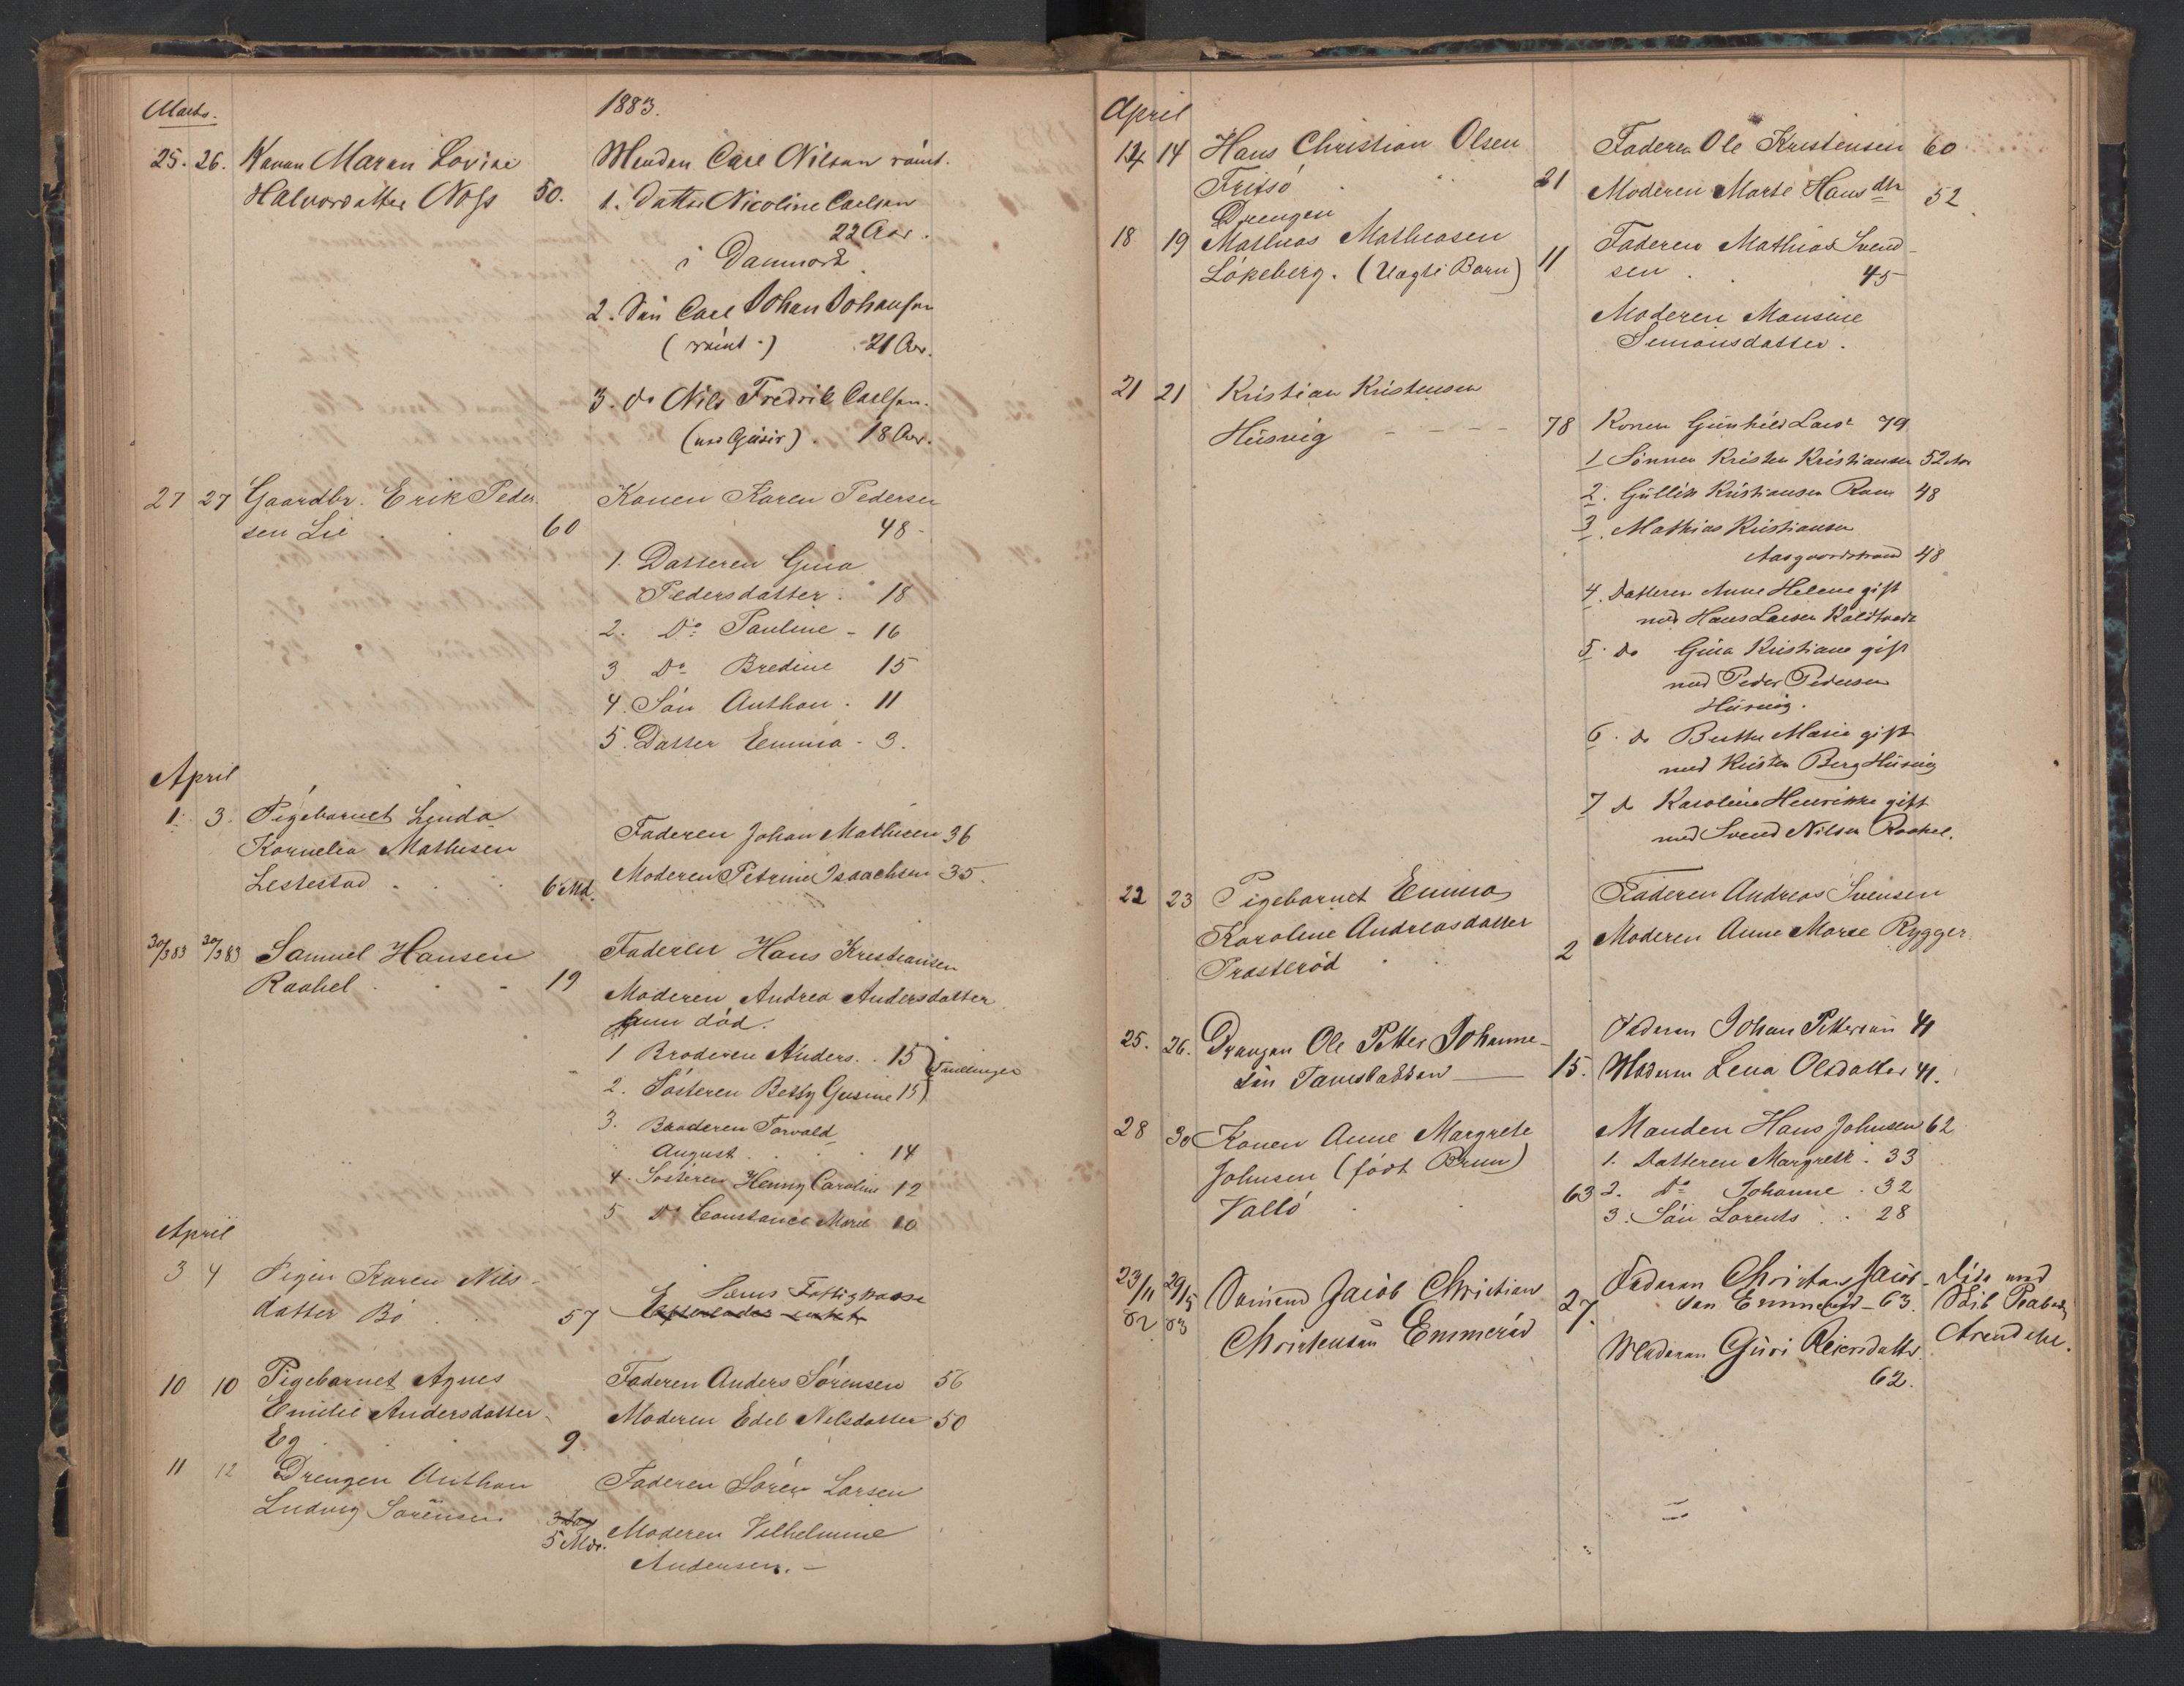 Marts. 1883.
25. 26. Konen Maren Lovise
Halvorsdatter Noss 50.
Manden Carl Nilsen römt.
1. Datter Nicoline Carlsen
22 Aar.
i Danmark
2. Sön Carl Johan Johansen
(römt.) 21 Aar.
3. do Nils Fredrik Carlsen.
18 Aar.
27 27 Gaardbr. Erik Peder
sen Lie 60
Konen Karen Pedersen
48-
1. Datteren Gina
Pedersdatter. 18
2. Do Pauline - 16
3 Do Bredine 15
4. Sön Anthon. 11
5. Datter Emma - 3.
April
1. 3. Pigebarnet Linda
Kornelia Mathisen
Lestestad 6 Md.
Faderen Johan Mathisen 36
Moderen Petrine Isaachsen 35.
30/3 83 30/3 83 Samuel Hansen
Raakel 19
Faderen Hans Kristiansen
Moderen Andrea Andersdatter
hun död.
1 Broderen Anders. 15
Tvillinger
2. Sösteren Betsy Gusine 15
3. Broderen Torvald
August 14
4. Sösteren Henny Caroline 12
5 Do Constance Marie 10
April
3 4 Pigen Karen Nils-
datter Bö 57
Sems Fattigkasse
Efterlader intet
10 10 Pigebarnet Agnes
Emilie Andersdatter
Eg 9.
Faderen Anders Sörensen 56
Moderen Edel Nilsdatter 50
11 12 Drengen Anthon
Ludvig Sörensen
5 Mdr.
Faderen Sören Larsen
Moderen Vilhelmine
Andersen. -
April
14 14 Hans Christian Olsen
Fritsö 21
Faderen Ole Kristensen 60
Moderen Marte Hansdtr 52
Drengen
18 19 Mathias Mathiasen
Lökeberg. (Uægte Barn) 11
Faderen Mathias Svend-
sen 45
Moderen Mansine
Simonsdatter.
21 21 Kristian Kristensen
Husvig - - - - 78
Konen Gunhild Larsd 79
1 Sönnen Kristen Kristiansen 52 Aar
2. Gullik Kristiansen Ram 48
3. Mathias Kristiansen
Aasgaardstrand 48
4. Datteren Anne Helene gift
med Hans Larsen
5. do Gina Kristiane gift
med Peder Pedersen
Husvig.
6. do Berthe Marie gift
med Kristen Berg Husvig
7 d Karoline Henrikke gift
med Svend Nilsen Raakel.
22 23 Pigebarnet Emma
Karoline Andreasdatter
Presteröd 2
Faderen Andreas Svensen
Moderen Anne Marie Rygger
25. 26. Drengen Ole Petter Johanne-
sen 15.
Faderen Johan Pettersen 41
Moderen Lena Olsdatter 41.
28 30 Konen Anne Margrete
Johnsen (födt Brun)
Vallö 63
Manden Hans Johnsen 62
1. Datteren Margrete. 33
2. Do Johanne. 32
3. Sön Lorents. 28
23/11 82 29/5 83 Sömand Jacob Christian
Christensen Emmeröd 27.
Faderen Christen Jacob-
sen Emmeröd - 63.
Moderen Guri Reiersdatter
62.
Döde med
Skib
Arendal.